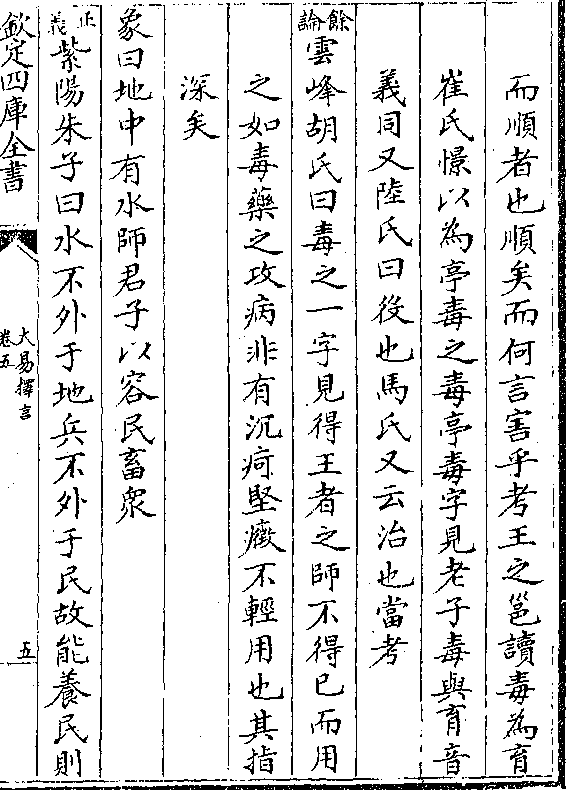 而順者也順矣而何言害乎考王之邕讀毒為育
崔氏憬以為亭毒之毒亭毒字見老子毒與育音
義同又陸氏曰役也馬氏又云治也當考
餘論
雲峰胡氏曰毒之一字見得王者之師不得已而用
之如毒藥之攻病非有沉疴堅癥不輕用也其指
深矣
象曰地中有水師君子以容民畜衆
正義
紫陽朱子曰水不外于地兵不外于民故能養民則
欽定四庫全書
大易擇言
卷五
五